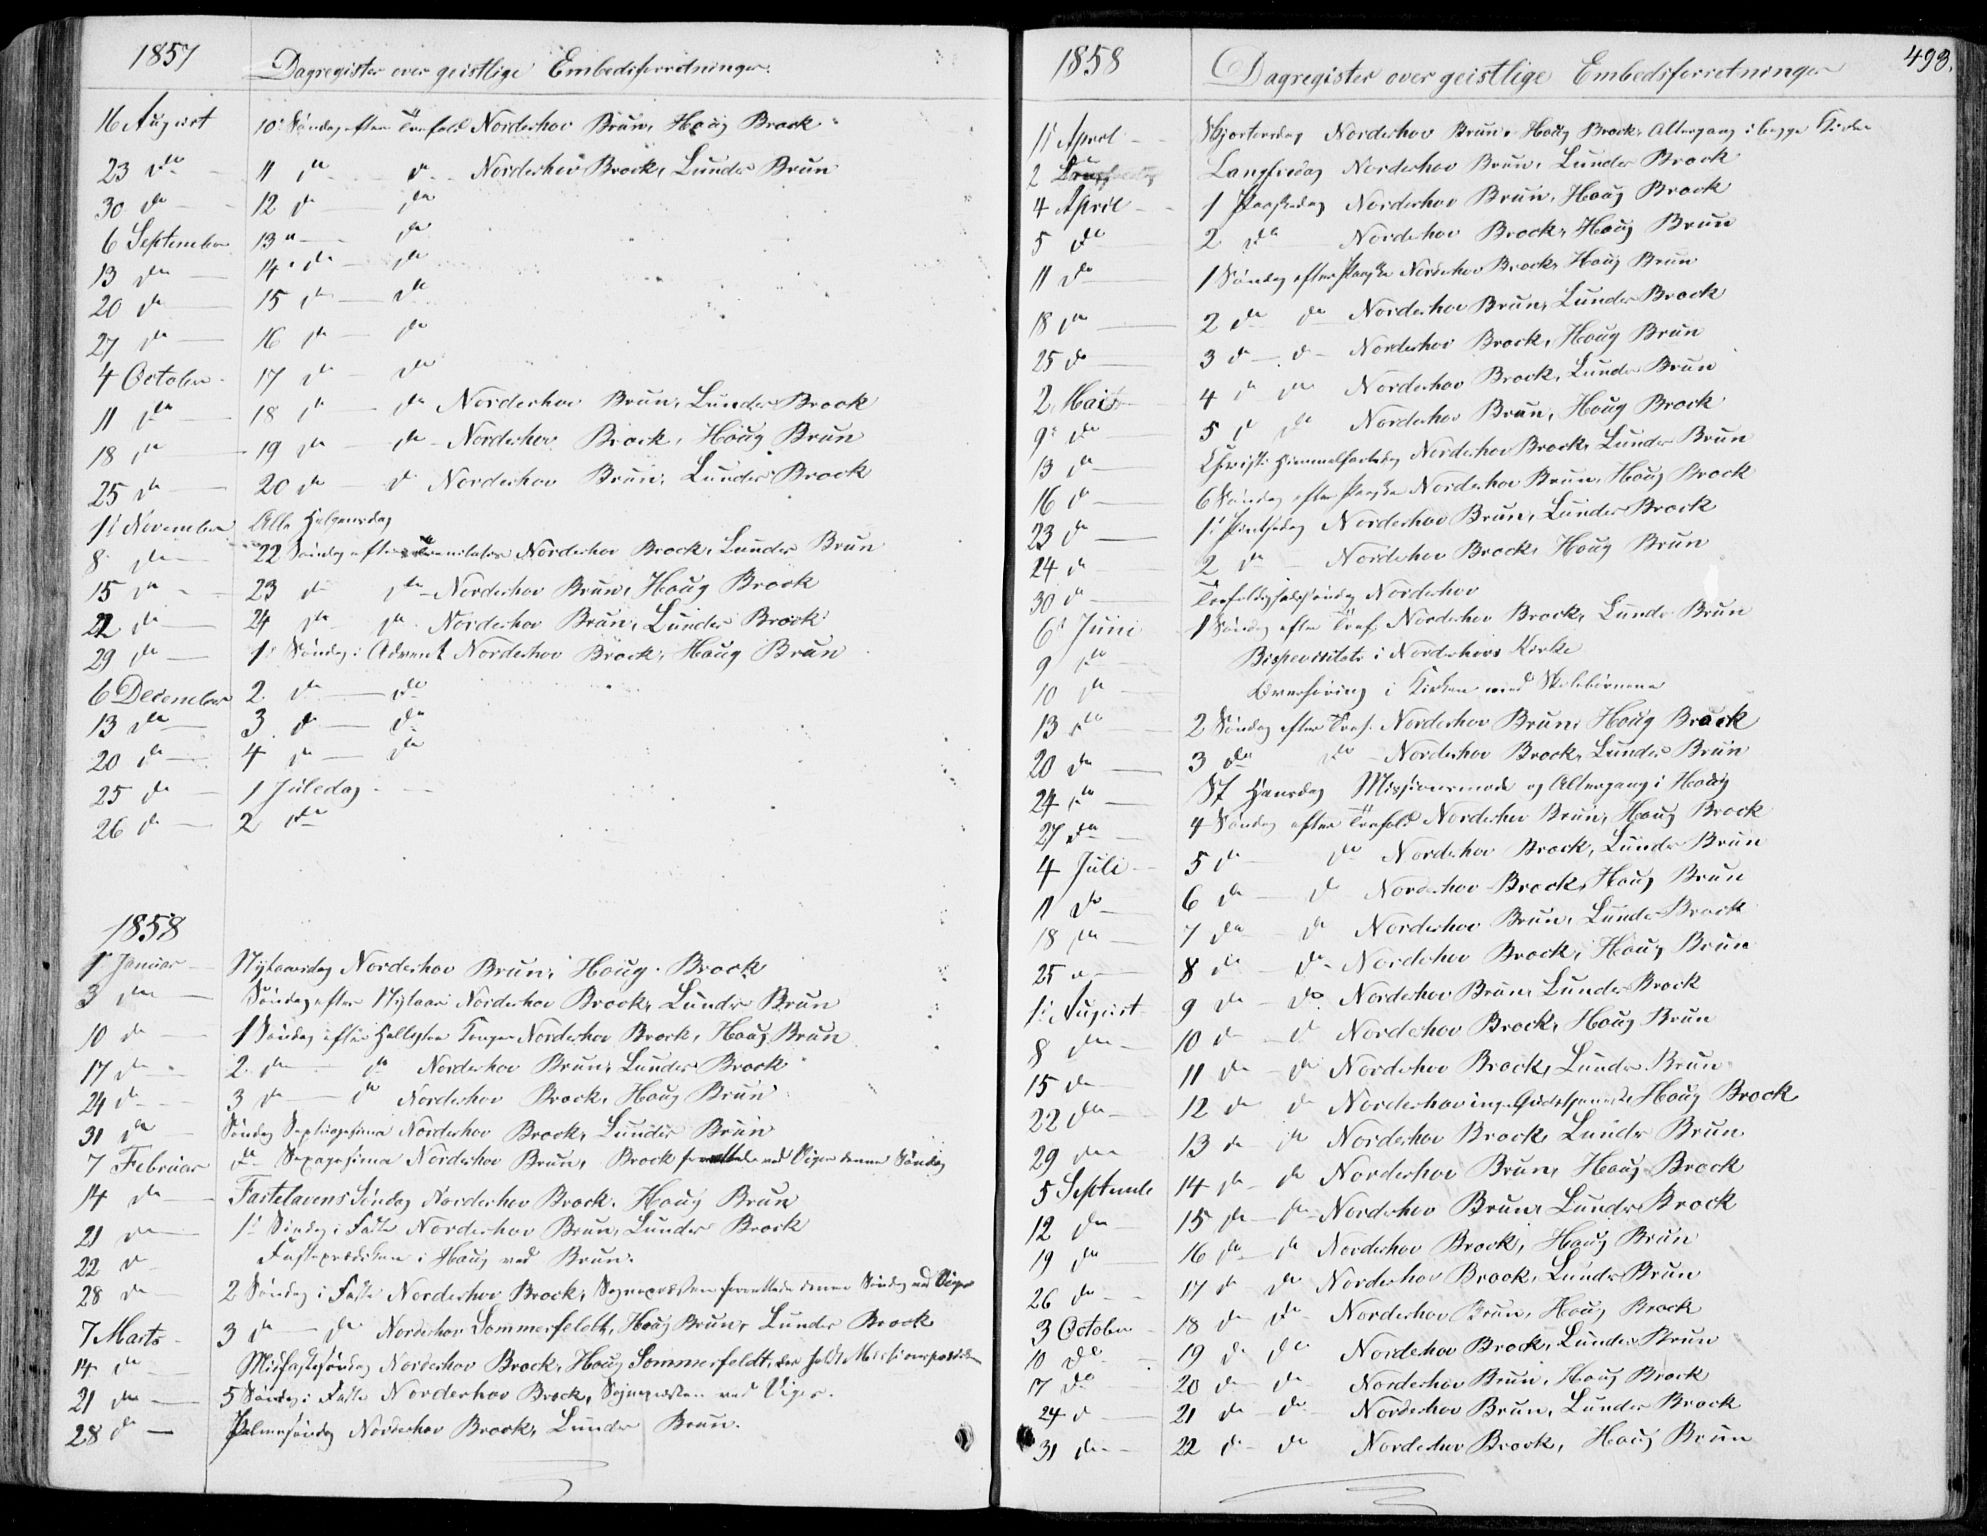 1857
Dagregister over geistlige Embedsforretninger.
16 August 10. Søndag efter Trefold Norderhov Brun, Houg Brock
23 do 11 do d. Norderhov Brock, Lunder Brun
30 do 12 do do
6 September 13 " do
13 do 14 do do
20 do 15 do do
27 do 16 do do
4 October 17 do do
11 do 18 do do Norderhov Brun, Lunder Brock
18 do 19 do do Norderhov Brock, Houg Brun
25 do 20 do do Norderhov Brun, Lunder Brock
1. November Alle Helgensdag
8. do 22 Søndag efter Trinitatis Norderhov Brock, Lunder Brun
15 do 23 do do Norderhov Brun, Houg Brock
22 do 24 do do Norderhov Brun, Lunder Brock
29 do 1. Søndag i Advent Norderhov Brock, Houg Brun
6 December 2. do do
13 do 3. do do
20 do 4 do do
25 do 1 Juledag
26 do 2 do
1858
1. Januar Nytaarsdag Norderhov Brun, Houg Brock
3 do Søndag efter Nytaar Norderhov Brock, Lunder Brun
10 do 1 Søndag efter Helligtre Konger Norderhov Brock, Houg Brun
17 do 2. do do Norderhov Brun, Lunder Brock
24 do 3 do do Norderhov Brock, Houg Brun
31 do Søndag Septuagesima Norderhov Brock, Lunder Brun
7 Februar do Sexagesima Norderhov Brun, Brock forrettede ved Viger denne Søndag
14 do Fastelavens Søndag Norderhov Brock, Houg Brun
21 do 1. Søndag i Faste Norderhov Brun, Lunder Brock
22 do Fasteprædiken i Houg ved Brun.
28 do 2 Søndag i Faste Norderhov Brock, Sognepræsten forrettede denne Søndag ved Viger
7 Marts 3 do do Norderhov Sommerfeldt, Houg Brun, Lunder Brock
14 do Midfastesøndag Norderhov Brock, Houg Sommerfeldt, der holdt
21 do 5 Søndag i Faste Norderhov Brock, Sognepræsten ved Viger.
28 do Palmesøndag Norderhov Brock, Lunder Brun.
1858
Dagregister over geistlige Embedsforretninger
493.
1. April Skjærtorsdag Norderhov Brun, Houg Brock, Altergang i begge Kirker
2 Langfredag Norderhov Brun, Lunder Brock
4 April 1 Paaskedag Norderhov Brun, Houg Brock
5 do 2 do Norderhov Brock, Houg Brun
11 do 1 Søndag efter Paaske Norderhov Brock, Houg Brun
18 do 2 do do Norderhov Brun, Lunder Brock
25 do 3 do d Norderhov Brock, Houg Brun
2 Mai 4 do do Norderhov Brock, Lunder Brun
9. do 5 do do Norderhov Brun, Houg Brock
13 do Christi Himmelfartsdag Norderhov Brock, Lunder Brun
16 do 6 Søndag efter Paaske Norderhov Brun, Houg Brock
23 do 1. Pintsedag Norderhov Brun, Lunder Brock
24 do 2 do Norderhov Brock, Houg Brun
30 do Trefoldighedssøndag Norderhov
6. Juni 1 Søndag efter Tref. Norderhov Brock, Lunder Brun
9 do Bispevisitats i Norderhovs Kirke
10 do Overhøring i Kirken med Skolebørnene
13 do 2 Søndag efter Tref. Norderhov Brun, Houg Brock
20 do 3 do do Norderhov Brock, Lunder Brun
24 do St Hansdag Missionsmøde og Altergang i Houg
27 do 4 Søndag efter Trefold Norderhov Brun, Houg Brock
4 Juli 5 do do Norderhov Brock, Lunder Brun
11 do 6 do d Norderhov Brock, Houg Brun
18 do 7 do do Norderhov Brun, Lunder Brock
25 " 8 do do Norderhov Brock, Houg Brun
1. August 9 do do Norderhov Brun, Lunder Brock
8 do 10 do d Norderhov Brock, Houg Brun
15 do 11 do do Norderhov Brock, Lunder Brun
22 do 12 do do Norderhov ingen Gudstjeneste, Houg Brock
29 do 13 do do Norderhov Brock, Lunder Brun
5 Septembr 14 do do Norderhov Brun, Houg Brock
12 do 15 do do Norderhov Brun, Lunder Brock
19 do 16 do do Norderhov Brock, Houg Brun
26 do 17 do do Norderhov Brock, Lunder Brun
3 October 18 do do Norderhov Brun, Houg Brock
10 do 19 do do Norderhov Brock, Lunder Brun
17 do 20 do do Norderhov Brun, Houg Brock
24 d 21 do do Norderhov Brun, Lunder Brock
31 do 22 do do Norderhov Brock, Houg Brun